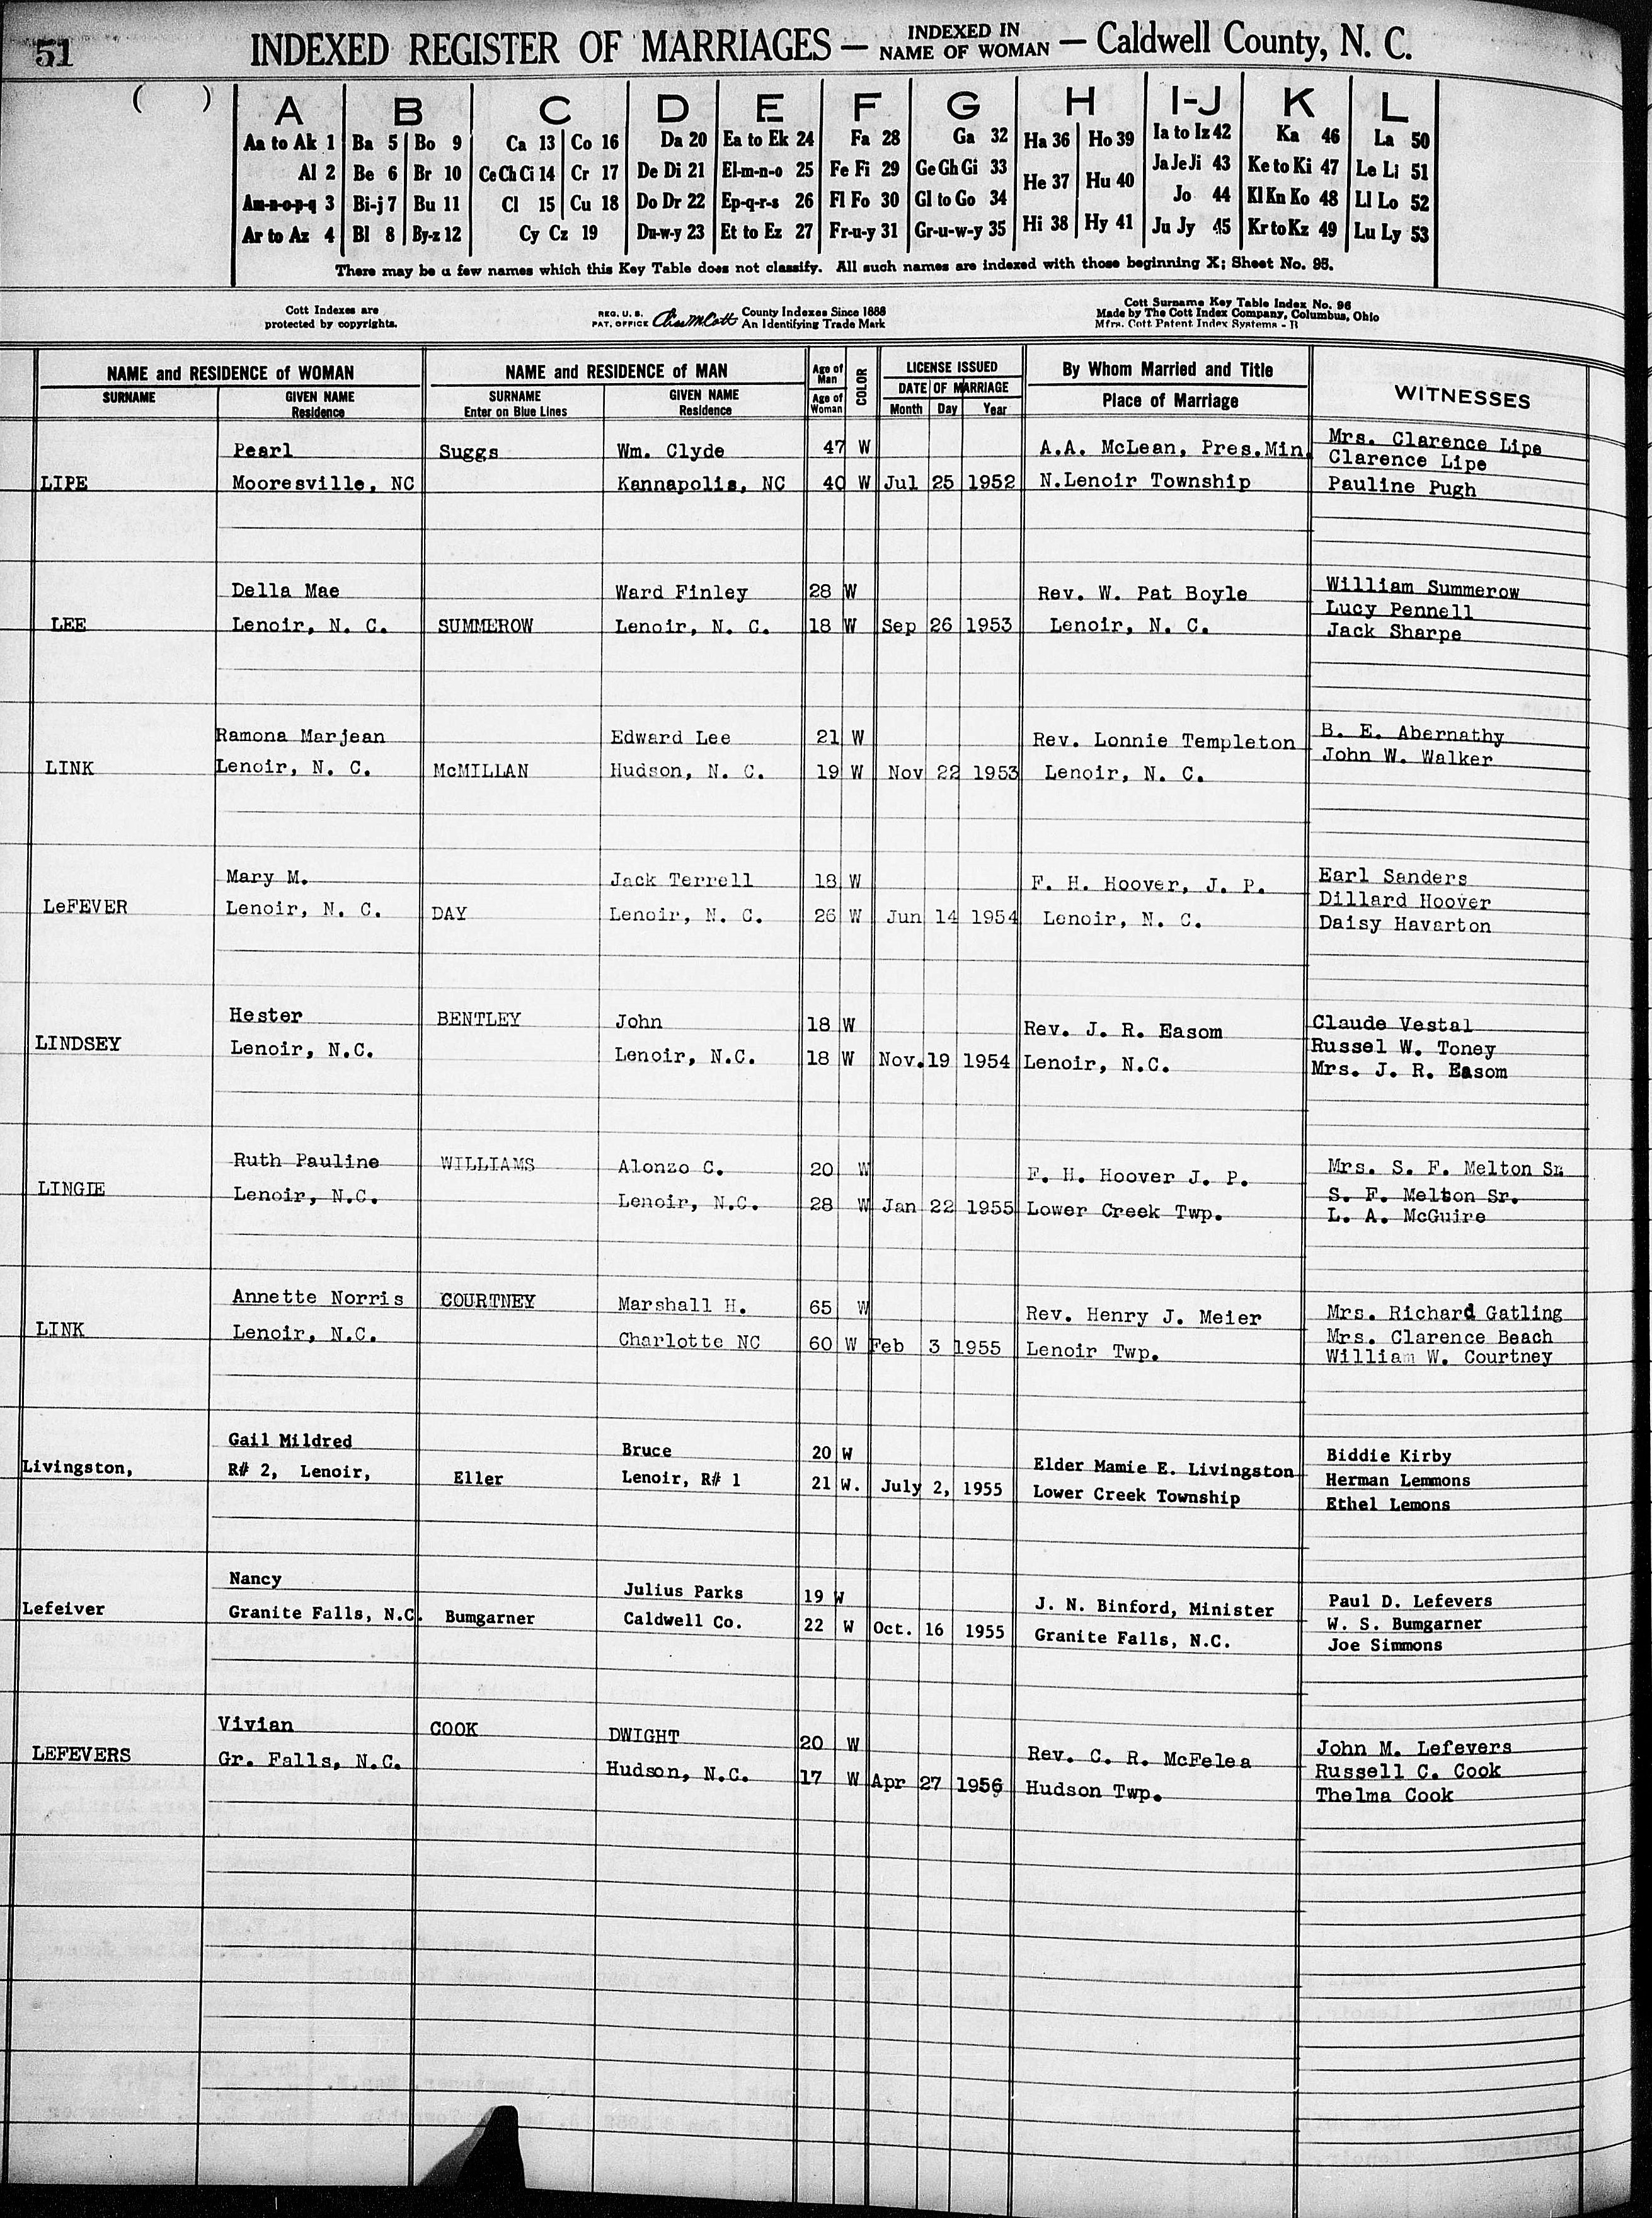 51
INDEXED REGISTER OF MARRIAGES — INDEXED IN NAME OF WOMAN — Caldwell County, N. C.
( )
A B C D E F G H I-J K L
Aa to Ak 1 Ba 5 Bo 9 Ca 13 Co 16 Da 20 Ea to Ek 24 Fa 28 Ga 32 Ha 36 Ho 39 Ia to Iz 42 Ka 46 La 50
Al 2 Be 6 Br 10 Ce Ch Ci 14 Cr 17 De Di 21 El-m-n-o 25 Fe Fi 29 Ge Gh Gi 33 He 37 Hu 40 Ja Je Ji 43 Ke to Ki 47 Le Li 51
Am-n-o-p-q 3 Bi-j 7 Bu 11 Cl 15 Cu 18 Do Dr 22 Ep-q-r-s 26 Fl Fo 30 Gl to Go 34 Jo 44 Kl Kn Ko 48 Ll Lo 52
Ar to Az 4 Bl 8 By-z 12 Cy Cz 19 Du-w-y 23 Et to Ez 27 Fr-u-y 31 Gr-u-w-y 35 Hi 38 Hy 41 Ju Jy 45 Kr to Kz 49 Lu Ly 53
There may be a few names which this Key Table does not classify. All such names are indexed with those beginning X; Sheet No. 95.
Cott Indexes are protected by copyrights.
REG. U. S. PAT. OFFICE Chas M Cott County Indexes Since 1888 An Identifying Trade Mark
Cott Surname Key Table Index No. 96
Made by The Cott Index Company, Columbus, Ohio
Mfrs. Cott Patent Index Systems - B
NAME and RESIDENCE of WOMAN NAME and RESIDENCE of MAN Age of Man COLOR LICENSE ISSUED By Whom Married and Title WITNESSES
SURNAME GIVEN NAME Residence SURNAME Enter on Blue Lines GIVEN NAME Residence Age of Woman DATE OF MARRIAGE Month Day Year Place of Marriage
Pearl Suggs Wm. Clyde 47 W A.A. McLean, Pres.Min. Mrs. Clarence Lipe
Clarence Lipe
LIPE Mooresville, NC Kannapolis, NC 40 W Jul 25 1952 N.Lenoir Township Pauline Pugh
Della Mae Ward Finley 28 W Rev. W. Pat Boyle William Summerow
Lucy Pennell
LEE Lenoir, N. C. SUMMEROW Lenoir, N. C. 18 W Sep 26 1953 Lenoir, N. C. Jack Sharpe
Ramona Marjean Edward Lee 21 W Rev. Lonnie Templeton B. E. Abernathy
LINK Lenoir, N. C. McMILLAN Hudson, N. C. 19 W Nov 22 1953 Lenoir, N. C. John W. Walker
Mary M. Jack Terrell 18 W F. H. Hoover, J. P. Earl Sanders
Dillard Hoover
LeFEVER Lenoir, N. C. DAY Lenoir, N. C. 26 W Jun 14 1954 Lenoir, N. C. Daisy Havarton
Hester BENTLEY John 18 W Rev. J. R. Easom Claude Vestal
Russel W. Toney
LINDSEY Lenoir, N.C. Lenoir, N.C. 18 W Nov. 19 1954 Lenoir, N.C. Mrs. J. R. Easom
Ruth Pauline WILLIAMS Alonzo C. 20 W F. H. Hoover J. P. Mrs. S. F. Melton Sr.
S. F. Melton Sr.
LINGIE Lenoir, N.C. Lenoir, N.C. 28 W Jan 22 1955 Lower Creek Twp. L. A. McGuire
Annette Norris COURTNEY Marshall H. 65 W Rev. Henry J. Meier Mrs. Richard Gatling
Mrs. Clarence Beach
LINK Lenoir, N.C. Charlotte NC 60 W Feb 3 1955 Lenoir Twp. William W. Courtney
Gail Mildred Bruce 20 W Elder Mamie E. Livingston Biddie Kirby
Herman Lemmons
Livingston, R# 2, Lenoir, Eller Lenoir, R# 1 21 W. July 2, 1955 Lower Creek Township Ethel Lemons
Nancy Julius Parks 19 W J. N. Binford, Minister Paul D. Lefevers
W. S. Bumgarner
Lefeiver Granite Falls, N.C. Bumgarner Caldwell Co. 22 W Oct. 16 1955 Granite Falls, N.C. Joe Simmons
Vivian COOK DWIGHT 20 W Rev. C. R. McFelea John M. Lefevers
Russell C. Cook
LEFEVERS Gr. Falls, N.C. Hudson, N.C. 17 W Apr 27 1956 Hudson Twp. Thelma Cook